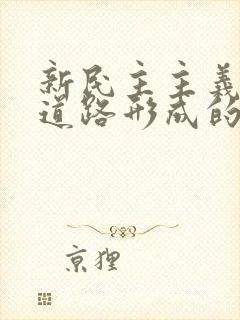 新民主主義
道路形成的
京狸